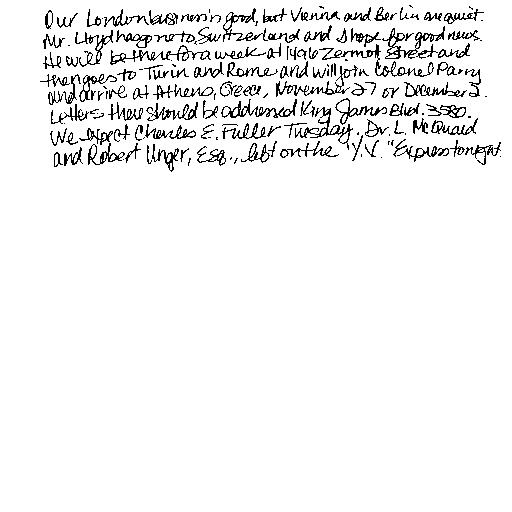 Our London business is good, but Vienna and Berlin are quiet.
Mr. Lloyd has gone to Switzerland and I hope for good news.
He will be there for a week at 1496 Zermot Street and
then goes to Turin and Rome and will join Colonel Parry
and arrive at Athens, Greece, November 27 or December 2.
Letters there should be addressed King James Blvd. 3580.
We expect Charles E. Fuller Tuesday. Dr. L. McQuaid
and Robert Unger, Esq., left on the "Y.V." Express tonight.